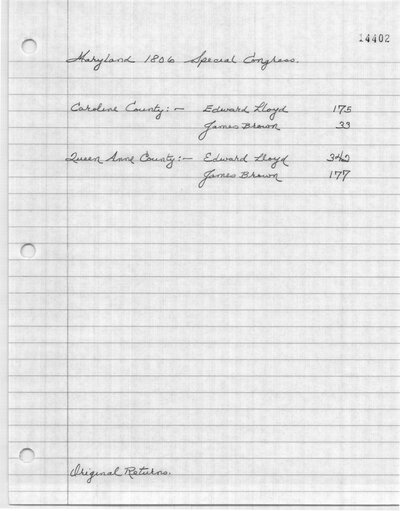 14402
Maryland 1806 Special Congress.
Caroline County:— Edward Lloyd 175
James Brown 33
Queen Anne County:— Edward Lloyd 342
James Brown 177
Original Returns.